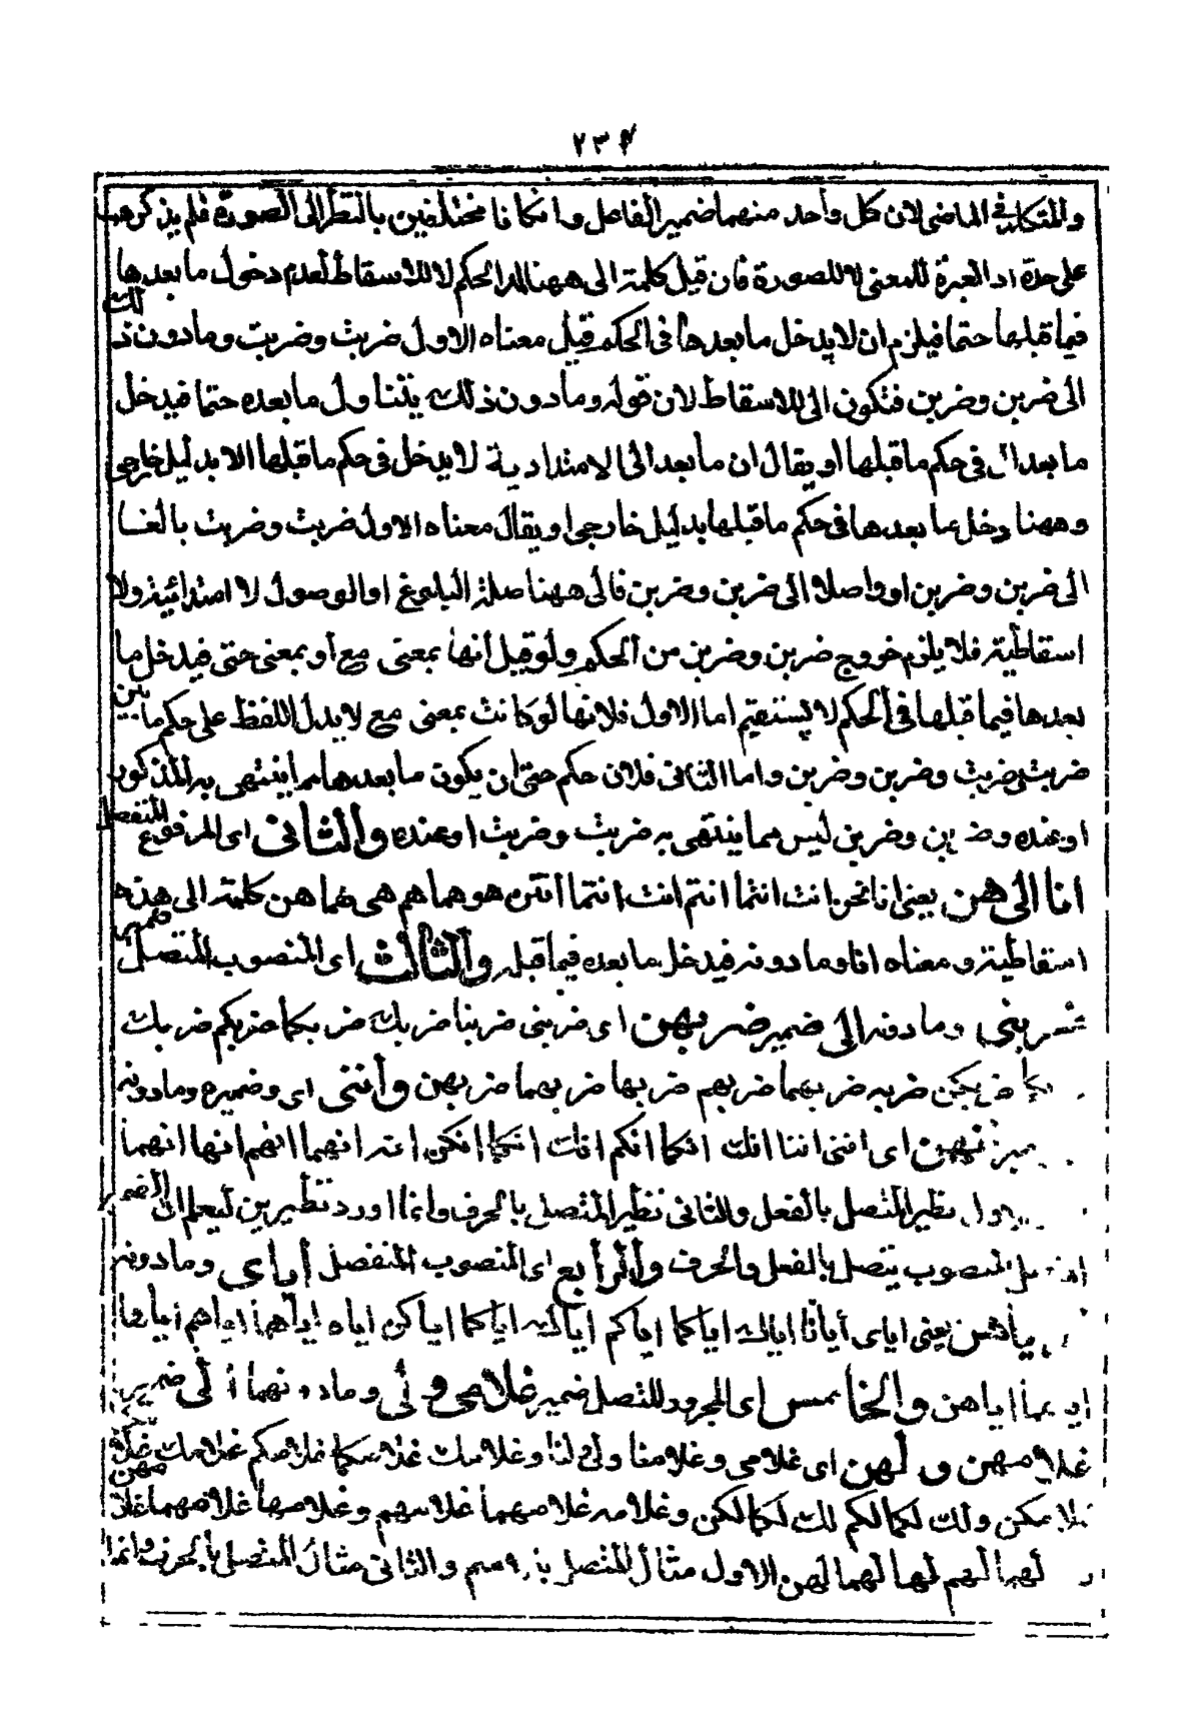 ٢٣٤
والمتكلم فى الماضى لان كل واحد منهما ضمير الفاعل وانكانا مختلفين بالنظر الى الصورة فلم يذكرهما
على حدة اذ العبرة للمعنى لا للصورة فان قيل كلمة الى ههنا لمد الحكم لا للاسقاط لعدم دخول ما بعدها
فيما قبلها حتما فيلزم ان لا يدخل ما بعدها فى الحكم قيل معناه الاول ضربت وضربت وما دون ذلك
الى ضربن وضربن فتكون الى للاسقاط لان قوله وما دون ذلك يتناول ما بعده حتما فيدخل
ما بعد الى فى حكم ما قبلها او يقال ان ما بعد الى الامتدادية لا يدخل فى حكم ما قبلها الا بدليل خارجى
وههنا دخل ما بعدها فى حكم ما قبلها بدليل خارجى او يقال معناه الاول ضربت وضربت بالغا
الى ضربن وضربن او واصلا الى ضربن وضربن فالى ههنا صلة البلوغ او الوصول لا امتدائية ولا
اسقاطية فلا يلزم خروج ضربن وضربن من الحكم ولو قيل انها بمعنى مع او بمعنى حتى فيدخل ما
بعدها فيما قبلها فى الحكم لا يستقيم اما الاول فلانها لو كانت بمعنى مع لا يدل اللفظ على حكم ما بين
ضربت وضربت وضربن وضربن واما الثانى فلان حكم حتى ان يكون ما بعدها مما ينتهى به المذكور
او عنده وضربن وضربن ليس مما ينتهى به ضربت وضربت او عنده والثانى اى المرفوع المنفصل
انا الى هن يعنى انا نحن انت انتما انتم انت انتما انتن هو هما هم هى هما هن كلمة الى هذه
اسقاطية ومعناه انا وما دونه فيدخل ما بعده فيما قبله والثالث اى المنصوب المتصل ضميرهما
ضربنى وما دونه الى ضمير ضربهن اى ضربنى ضربنا ضربك ضربكما ضربكم ضربك
ضربكن ضربه ضربهما ضربهم ضربها ضربهما ضربهن واننى اى وضميره وما دونه
انهن اى اننى اننا انك انكما انكم انك انكما انكن انه انهما انهم انها انهما
الاول نظير المتصل بالفعل والثانى نظير المتصل بالحرف وانما اورد نظيرين ليعلم ان الضمير
المنصوب يتصل بالفعل والحرف والرابع اى المنصوب المنفصل اياى وما دونه
اياهن يعنى اياى ايانا اياك اياكما اياكم اياك اياكما اياكن اياه اياهما اياهم اياها
اياهما اياهن والخامس اى المجرور المتصل ضمير غلامى ولى وما دونهما الى ضمير
غلامهن و لهن اى غلامى وغلامنا ولى لنا وغلامك غلامكما غلامكم غلامك غلامكما
غلامكن ولك لكما لكم لك لكما لكن وغلامه غلامهما غلامهم وغلامها غلامهما غلامهن
لهما لهم لها لهما لهن الاول مثال المتصل بالاسم والثانى مثال المتصل بالحرف وانما